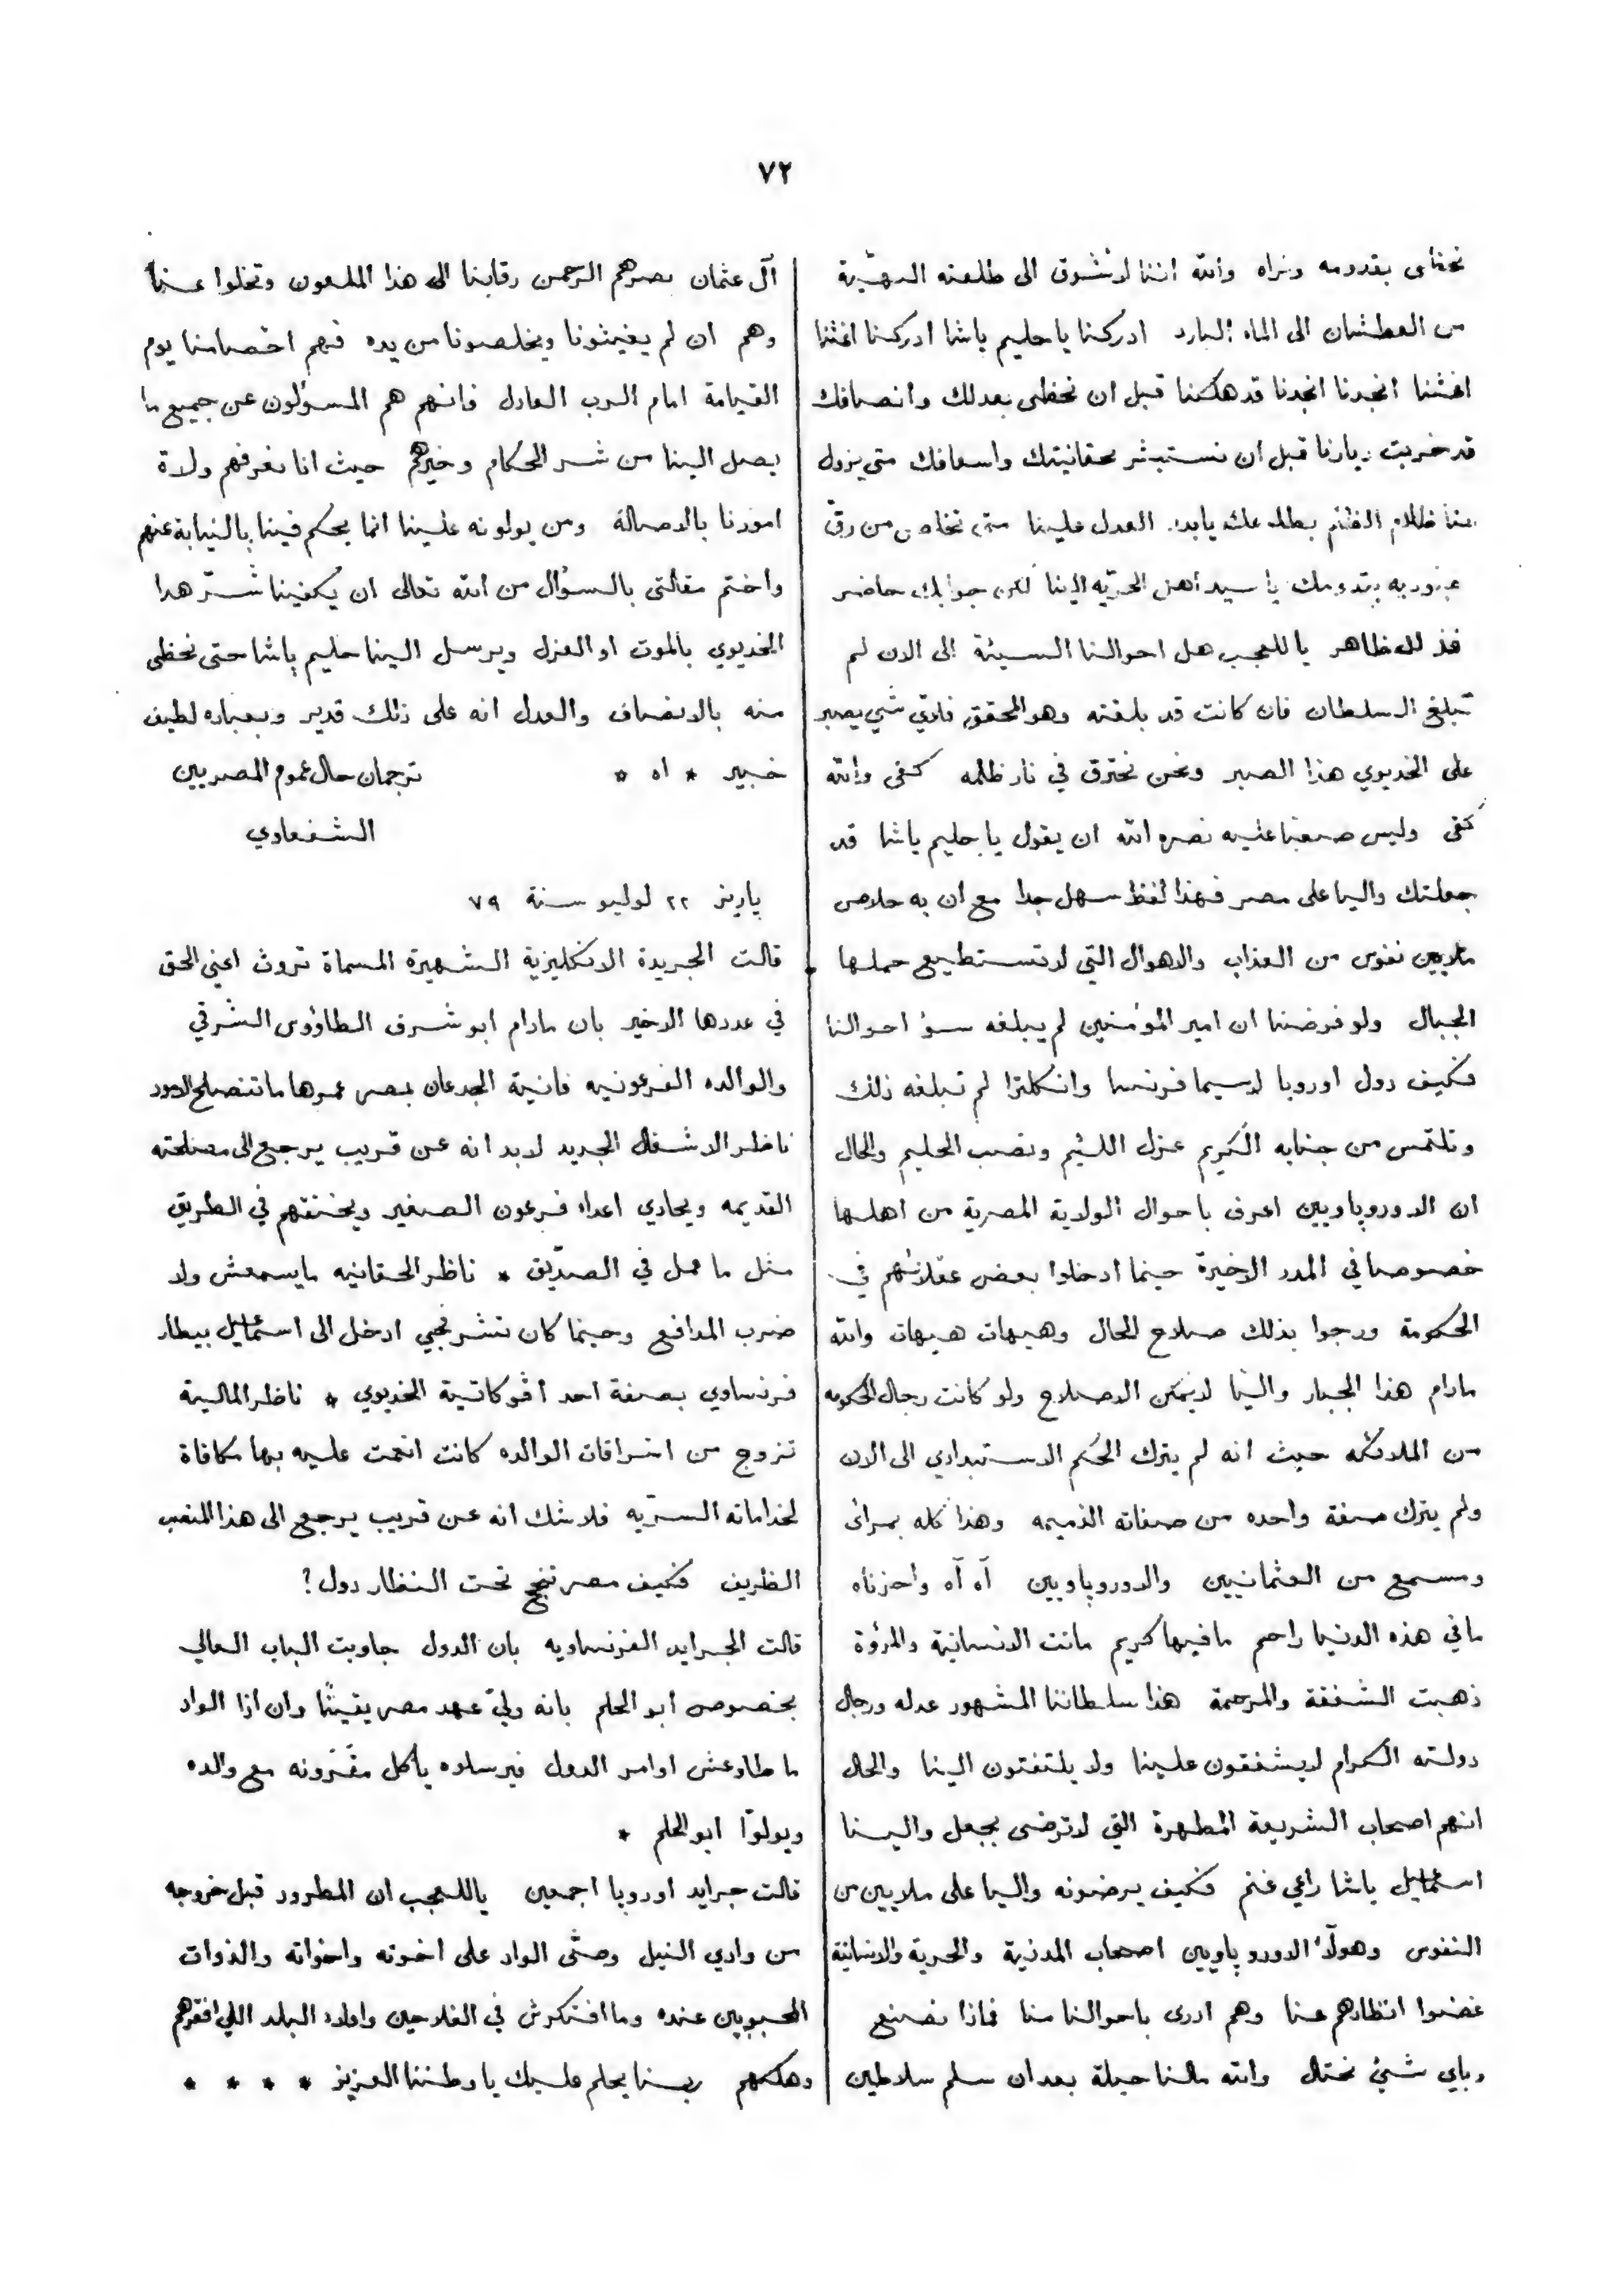 ٧٢
نحظى بقدومه ونراه والله اننا لاشوق الى طلعته البهيّة
من العطشان الى الماء البارد ادركنا يا حليم باشا ادركنا اغثنا
اغثنا انجدنا انجدنا قد هلكنا قبل ان نحظى بعدلك وانصافك
قد خربت ديارنا قبل ان نستبشر بحقانيتك واسعافك متى يزول
عنا ظلام الظلم بطلعتك يا بدر العدل علينا متى نخلص من رقّ
عبوديه بقدومك يا سيد اهل الحريّه الينا لكن جوابك حاضر
فذلك ظاهر يا للعجب هل احوالنا السيئة الى الان لم
تبلغ السلطان فان كانت قد بلغته وهو المحقق فلاي شي يصبر
على الخديوي هذا الصبر ونحن نحترق في نار ظلمه كفى والله
كفى وليس صعبا عليه نصره الله ان يقول يا حليم باشا قد
جعلتك واليا على مصر فهذا لفظ سهل جدا مع ان به خلاص
ملايين نفوس من العذاب والاهوال التي لا تستطيع حملها
الجبال ولو فرضنا ان امير المؤمنين لم يبلغه سؤ احوالنا
فكيف دول اوروبا لاسيما فرنسا وانكلترا لم تبلغه ذلك
وتلتمس من جنابه الكريم عزل اللئيم ونصب الحليم والحال
ان الاوروپاويين اعرف باحوال الولاية المصرية من اهلها
خصوصا في المدد الاخيرة حينما ادخلوا بعض عقلائهم في
الحكومة ورجوا بذلك صلاح الحال وهيهات هيهات والله
مادام هذا الجبار والينا لا يمكن الاصلاح ولو كانت رجال الحكومه
من الملائكه حيث انه لم يترك الحكم الاستبدادي الى الان
ولم يترك صفة واحده من صفاته الذميمه وهذا كله بمرائ
ومسمع من العثمانيين والاوروپاويين آه آه واحزناه
ما في هذه الدنيا راحم ما فيها كريم ماتت الانسانية والمرؤة
ذهبت الشفقة والمرحمة هذا سلطاننا المشهور عدله ورجال
دولته الكرام لا يشفقون علينا ولا يلتفتون الينا والحال
انهم اصحاب الشريعة المطهرة التي لا ترضى بجعل والينا
اسماعيل باشا راعي غنم فكيف يرضونه واليا على ملايين من
النفوس وهولآء الاوروپاويين اصحاب المدنية والحرية والانسانية
غضوا انظارهم عنا وهم ادرى باحوالنا منا فماذا نصنع
وباي شيئ نحتال والله مالنا حيلة بعد ان سلم سلاطين
آل عثمان نصرهم الرحمن رقابنا الى هذا الملعون وتخلوا عنا
وهم ان لم يغيثونا ويخلصونا من يده فهم اخصامنا يوم
القيامة امام الرب العادل فانهم هم المسؤلون عن جميع ما
يصل الينا من شر الحكام وخيرهم حيث انا نعرفهم ولاة
امورنا بالاصالة ومن يولونه علينا انما يحكم فينا بالنيابة عنهم
واختم مقالتي بالسؤال من الله تعالى ان يكفينا شرّ هذا
الخديوي بالموت او العزل ويرسل الينا حليم باشا حتى نحظى
منه بالانصاف والعدل انه على ذلك قدير وبعباده لطيف
خبير * اه *
ترجمان حال عموم المصريين
الشفعاوي
پاريز ٢٢ لوليو سنة ٧٩
قالت الجريدة الانكليزية الشهيرة المسماة تروث اعني الحق
في عددها الاخير بان مادام ابو شرف الطاؤوس الشرقي
والوالده الفرعونيه فانية الجدعان بمصر عمرها ما تنصلح الامور
ناظر الاشغال الجديد لا بد انه عن قريب يرجع الى مصلحته
القديمه ويحادي اعداء فرعون الصغير ويخنقهم في الطريق
مثل ما عمل في الصدّيق * ناظر الحقانيه ما يسمعش ولا
ضرب المدافع وحينما كان تشرنجي ادخل الى اسماعيل بيطار
فرنساوي بصفة احد اڤوكاتية الخديوي * ناظر المالية
تزوج من اشراقات الوالده كانت انعمت عليه بها مكافاة
لخداماته السريّه فلا شك انه عن قريب يرجع الى هذا المنصب
الظريف فكيف مصر تنجح تحت النظار دول ؟
قالت الجرايد الفرنساويه بان الدول جاوبت الباب العالي
بخصوص ابو الحلم بانه وليّ عهد مصر يقينًا وان اذا الواد
ما طاوعش اوامر الدول فيرسلوه ياكل مقرونه مع والده
ويولوّا ابو الحلم *
قالت جرايد اوروبا اجمعين يا للعجب ان المطرود قبل خروجه
من وادي النيل وصّى الواد على اخوته واخواته والذوات
المحبوبين عنده وما افتكرش في الفلاحين واولاد البلد اللي افقرهم
وهلكهم ربنا يحلم عليك يا وطننا العزيز * * * *